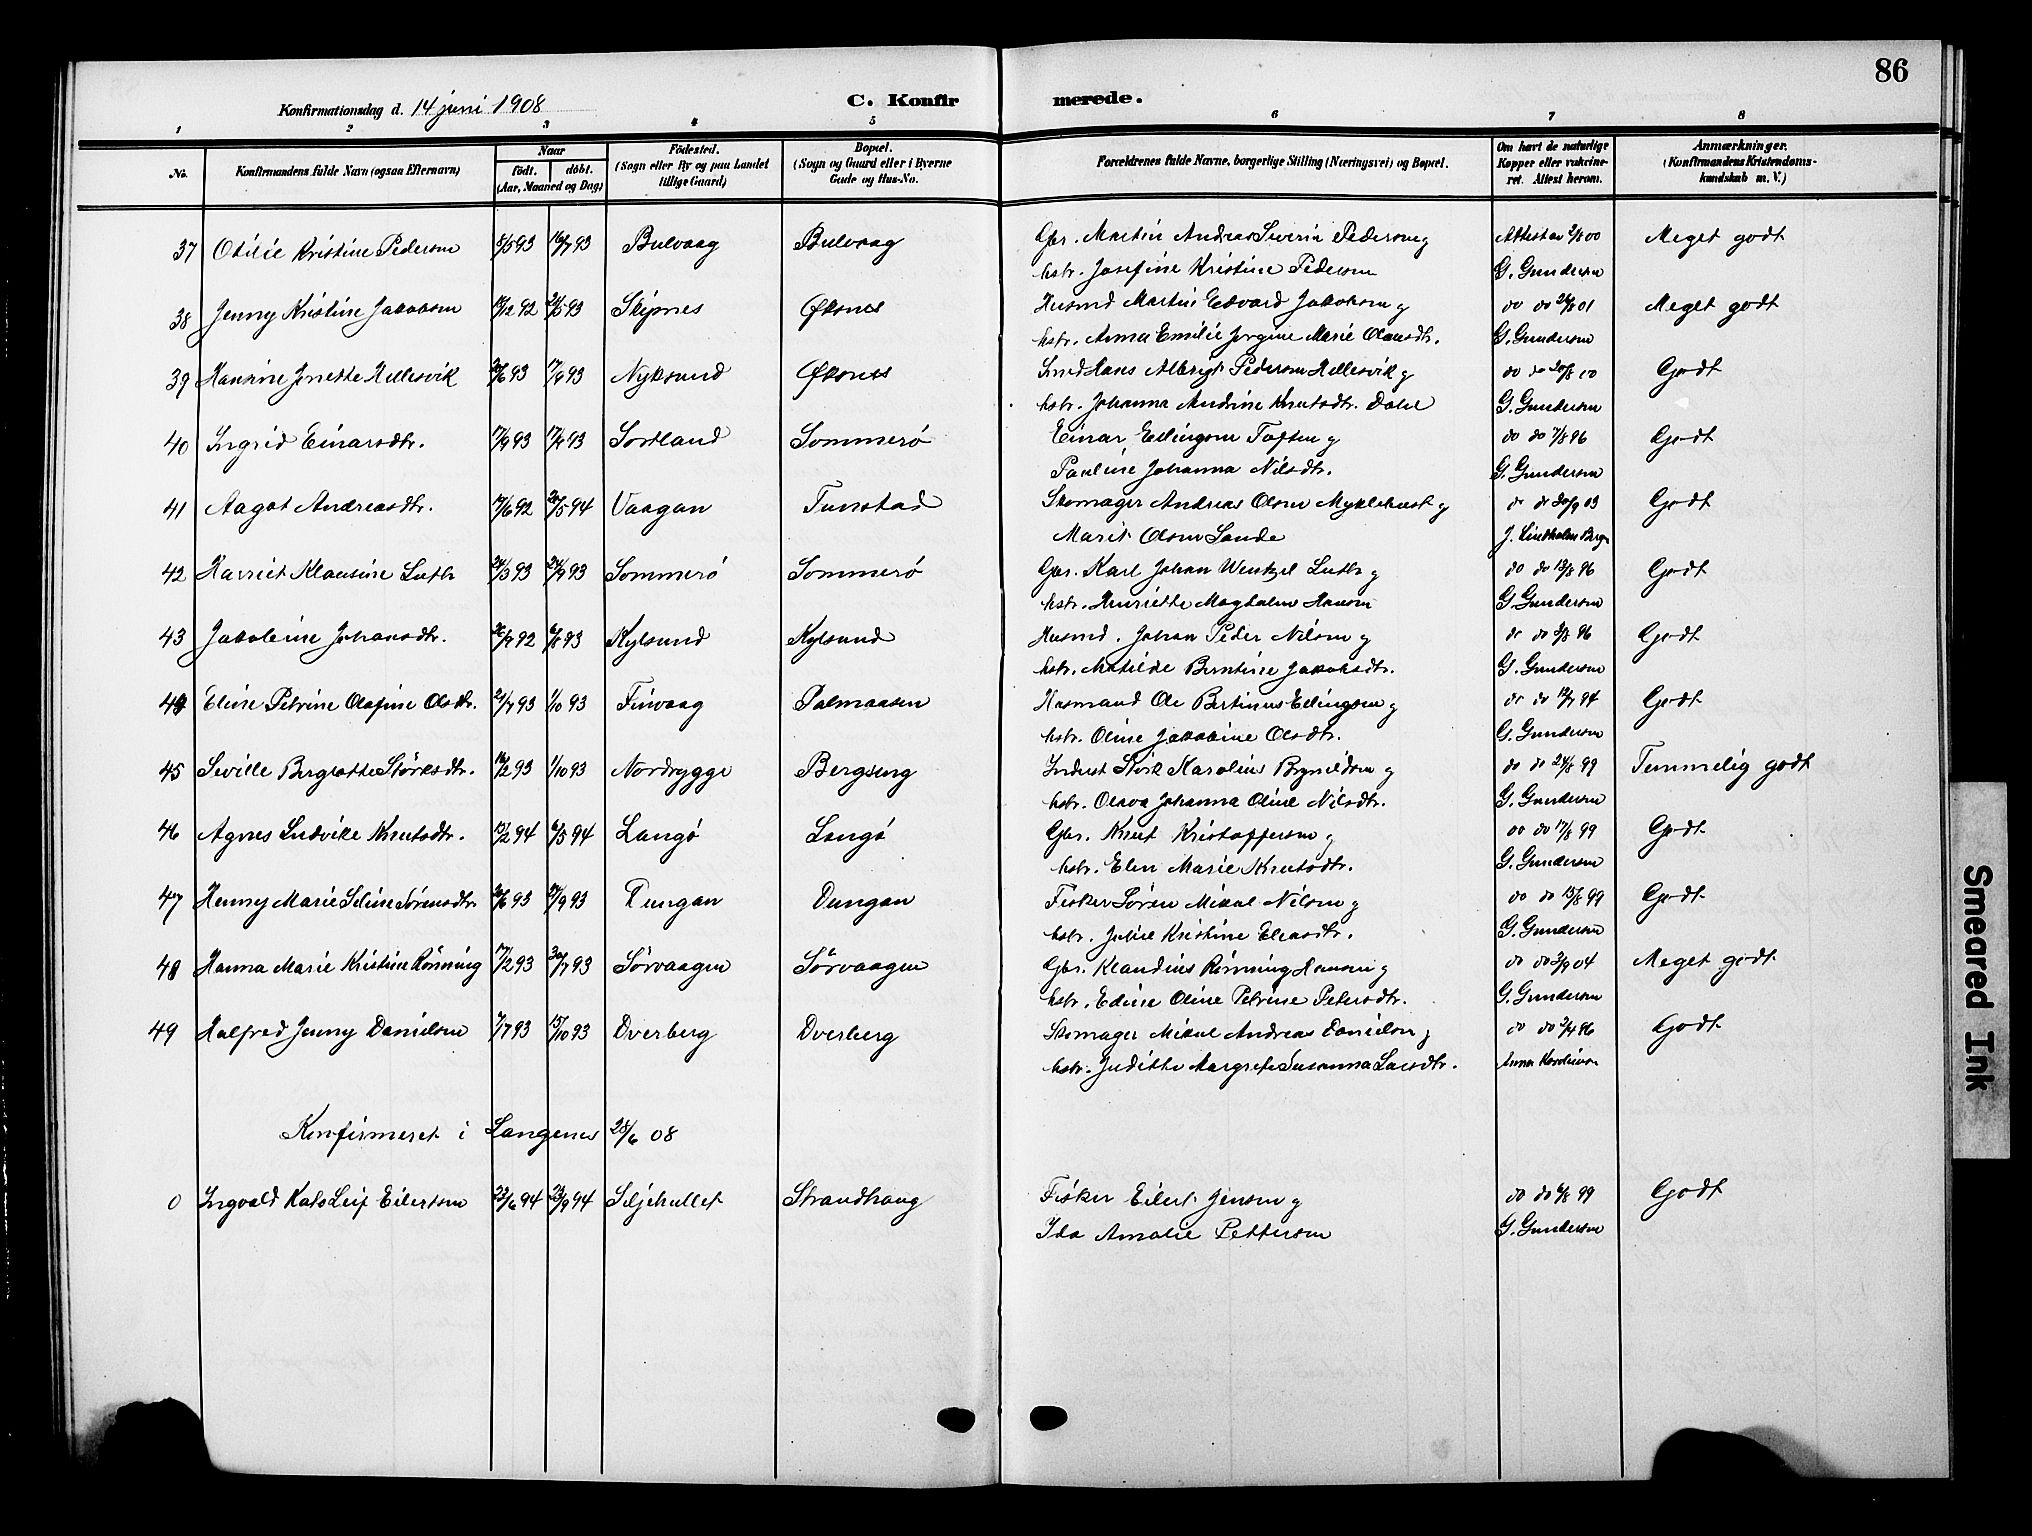 86
Konfirmationsdag d. 14 juni 1908
C. Konfirmerede.
1 2 3 4 5 6 7 8
No. Konfirmandens fulde Navn (ogsaa Efternavn) Naar födt. döbt. (Aar, Maaned og Dag) Födested. (Sogn eller By og paa Landet tillige Gaard) Bopæl. (Sogn og Gaard eller i Byerne Gade og Hus-No. Forældrenes fulde Navne, borgerlige Stilling (Næringsvei) og Bopæl. Om havt de naturlige Kopper eller vakcineret. Attest herom. Anmærkninger. (Konfirmandens Kristendomskundskab m. V.)
37 Otilie Kristine Pedersen 8/5 93 16/7 93 Bulvaag Bulvaag Gbr. Martin Andreas Severin Pedersen og Attest av 2/8 00 Meget godt
hstr. Josefine Kristine Pedersen G. Gundersen
38 Jenny Kristine Jakobsen 12/12 92 21/5 93 Skipnes Øksnes Husmd Martin Edvard Jakobsen og do do 24/8 01 Meget godt
hstr. Anna Emilie Jørgine Marie Olausdtr. G. Gundersen
39 Hansine Jenette Hellesvik 20/6 93 17/9 93 Nyksund Øksnes Smed Hans Albrigt Pedersen Hellesvik og do do 20/8 00 Godt
hstr. Johanna Andrine Knutsdtr. Dahl G. Gundersen
40 Ingrid Einarsdtr. 17/9 93 17/9 93 Sortland Sommerö Einar Edlingsen Toften og do do 7/8 96 Godt
Pauline Johanna Nilsdtr. G. Gundersen
41 Aagot Andreasdtr. 17/6 92 20/5 94 Vaagan Tunstad Skomager Andreas Olsen Myklebust og do do 30/9 03 Godt
Marit Olsen Sande J. Lindholm Berg
42 Harriet Klausine Lutbr 24/3 93 24/9 93 Sommerö Sommerö Gbr. Karl Johan Wentzel Lutbr og do do 13/8 96 Godt
hstr. Henriette Magdalene Hansen G. Gundersen
43 Jakobine Johansdtr. 26/9 92 6/8 93 Kylsund Kylsund Husmd. Johan Peder Nilsen og do do 3/8 96 Godt
hstr. Matilde Berntine Jakobsdtr. G. Gundersen
44 Eline Petrine Olafine Olsdtr. 21/7 93 1/10 93 Finvaag Palmaasen Husmand Ole Bertinus Edlingsen og do do 12/7 94 Godt
hstr. Oline Jakobine Olsdtr. G. Gundersen
45 Seville Bergiotte Störksdtr. 16/2 93 1/10 93 Nordrygge Bergseng Inderst Störk Karolius Bryneldsen og do do 24/8 99 Temmelig godt
hstr. Olava Johanna Oline Nilsdtr. G. Gundersen
46 Agnes Ludvike Knutsdtr. 13/2 94 6/5 94 Langö Langö Gbr. Knut Kristoffersen og do do 17/8 99 Godt
hstr. Elen Marie Knutsdtr. G. Gundersen
47 Henny Marie Seline Sörensdtr. 20/6 93 17/9 93 Tungan Dungan Fisker Sören Mikal Nilsen og do do 15/8 99 Godt
hstr. Julie Kristine Eliasdtr. G. Gundersen
48 Hanna Marie Kristine Rönning 17/2 93 30/7 93 Sörvaagen Sörvaagen Gbr. Klaudius Rönning Hansen og do do 3/9 04 Meget godt
hstr. Edine Oline Petrine Petersdtr. G. Gundersen
49 Halfred Jenny Danielsen 7/7 93 15/10 93 Dverberg Dverberg Skomager Mikal Andreas Danielsen og do do 3/4 96 Godt
hstr. Juditte Margrete Susanna Larsdtr.
Konfirmeret i Langenes 28/6 08
0 Ingvald Kato Leif Eilertsen 23/6 94 23/9 94 Siljehullet Strandhaug Fisker Eilert Jensen og do do 6/8 99 Godt
Ida Amalie Pettersen G. Gundersen
Smeared Ink